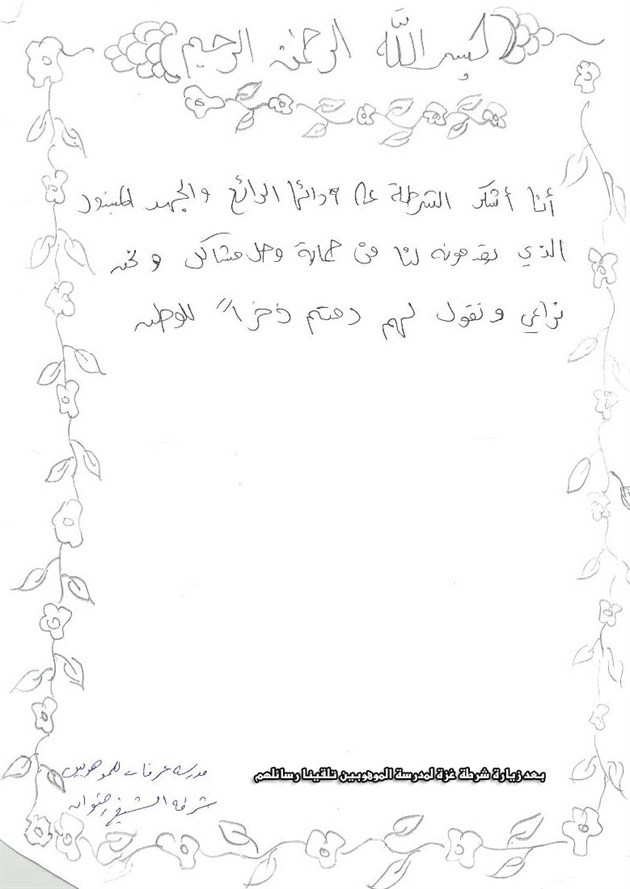 بسم الله الرحمن الرحيم
أنا أشكر الشرطة على دائها الرائع والجهد المبذول
الذي يقدمونه لنا من حماية وحل مشاكل ونحن
ونقول لهم دمتم ذخراً للوطن
مدرسة عرفات للموهوبين
شرطة الشيخ رضوان
بعد زيارة شرطة غزة لمدرسة الموهوبين تلقينا رسائلهم